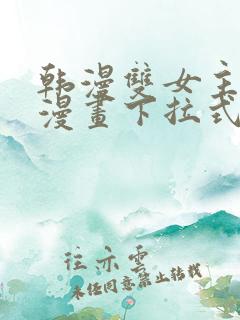 韩漫雙女主
漫畫下拉式
往亦雲
未经同意禁止转载